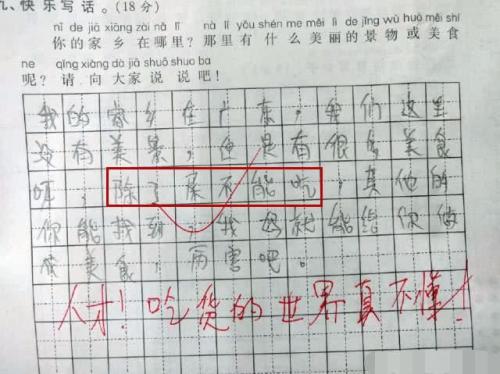 九、快乐写话。(18分)
nǐ de jiā xiāng zài nǎ lǐ nà lǐ yǒu shén me měi lì de jǐng wù huò měi shí
你的家乡在哪里?那里有什么美丽的景物或美食
ne qǐng xiàng dà jiā shuō shuo ba
呢?请向大家说说吧!
我的家乡在广东,我们这里
没有美景,但是有很多美食
呵,除了屎不能吃,其他的
你能找到,我妈就能给你做
成美食,厉害吧。
人才!吃货的世界真不懂!